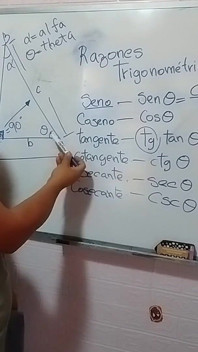 α=alfa
θ=theta
B
α
c
90°
θ
b
Razones
Trigonométri
Seno — Sen θ =
Coseno — Cos θ
tangente — tg, tan θ
tangente — ctg θ
ecante. — Sec θ
Cosecante. — Csc θ